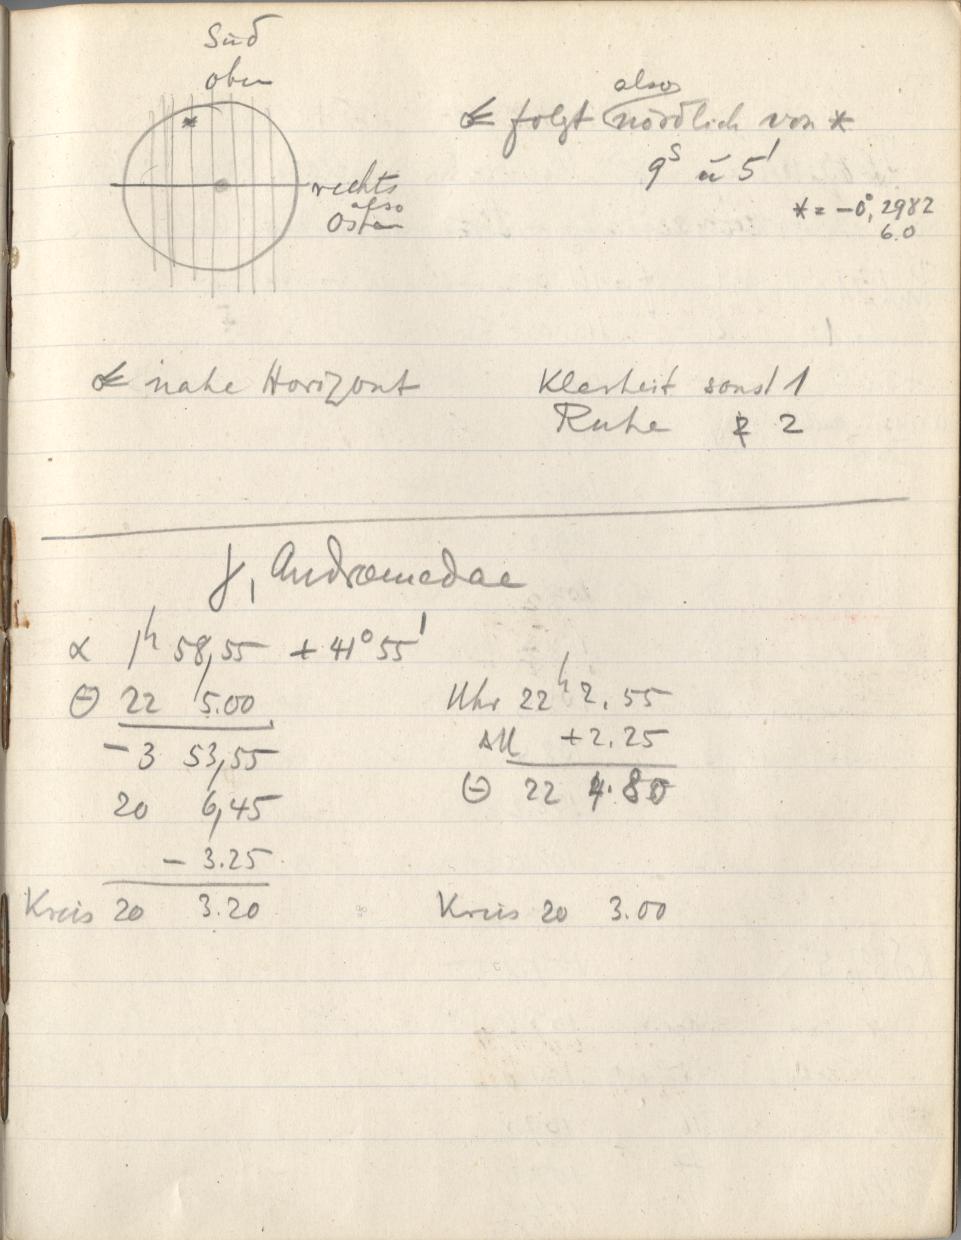 Süd
oben
rechts
also
Osten
also
☄ folgt nördlich von *
9ˢ u 5'
* = -0°, 2982
6.0
☄ nahe Horizont
Klarheit sonst 1
Ruhe 2
γ, Andromedae
α 1ʰ 58,55 + 41° 55'
Θ 22 5.00
- 3 53,55
20 6,45
- 3.25
Kreis 20 3.20
Uhr 22ʰ 2.55
ΔU +2.25
Θ 22 4.80
Kreis 20 3.00